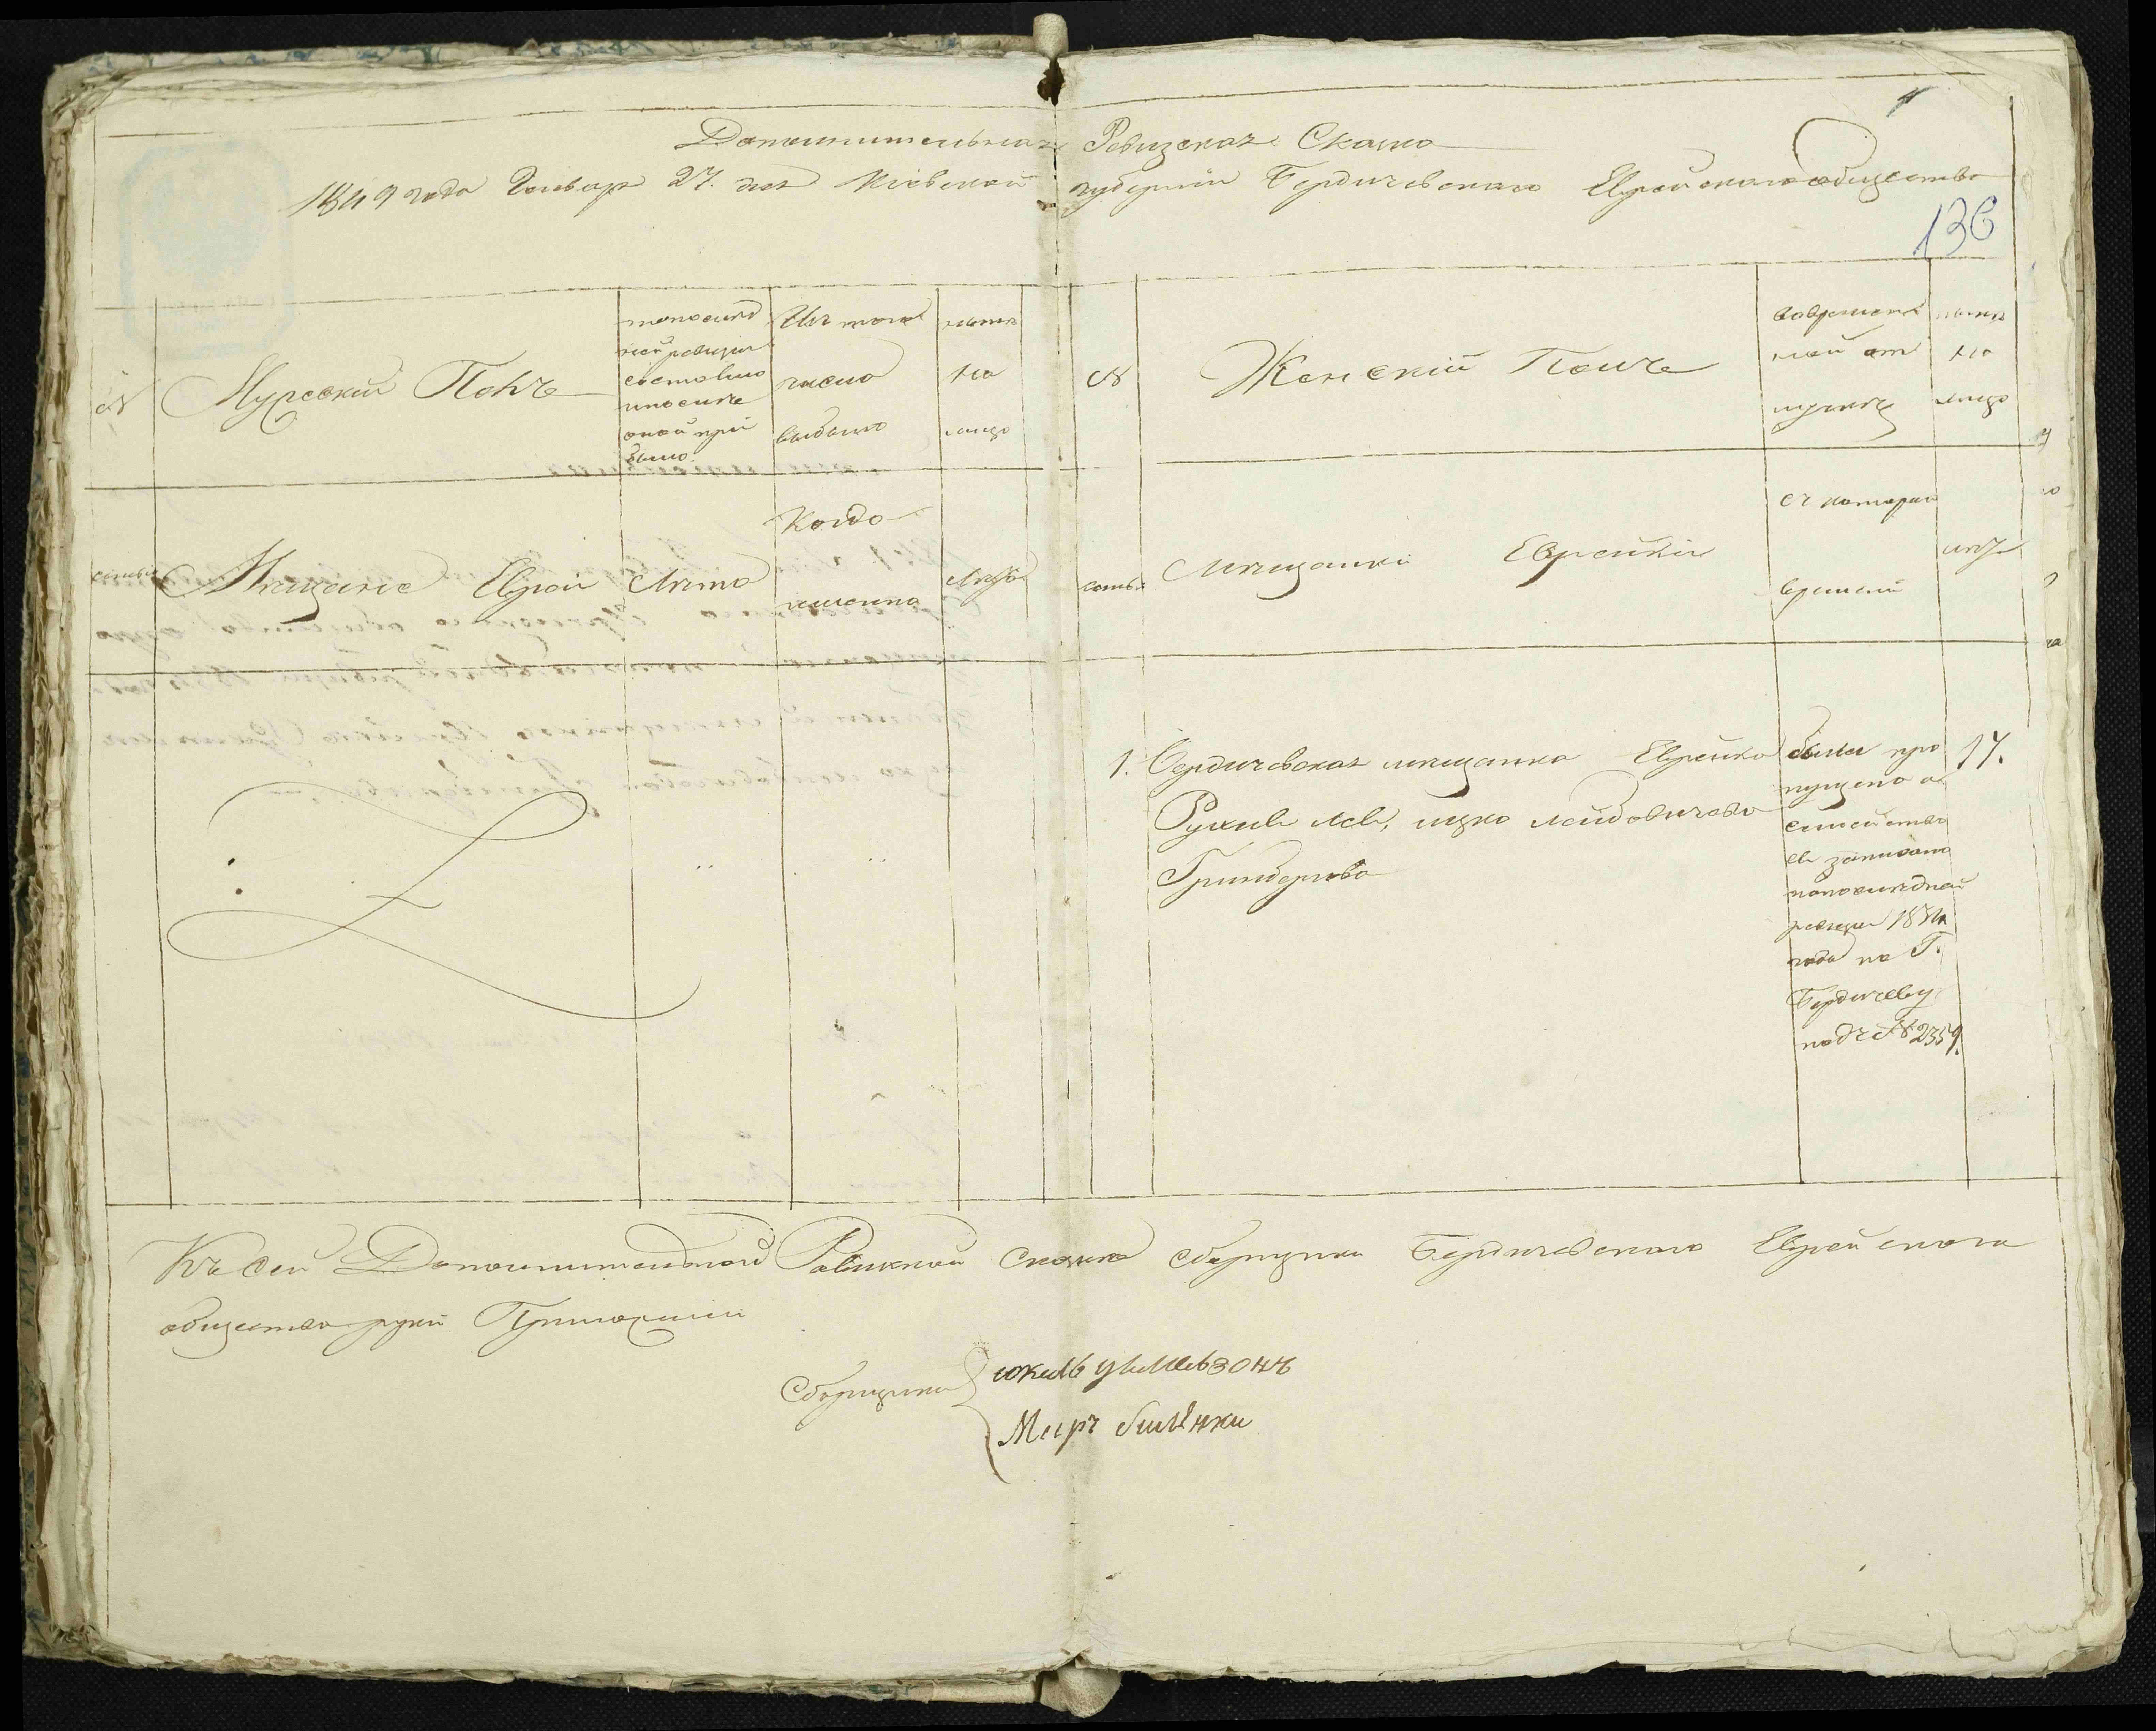 Дополнительная Ревизская Сказка
1849 года Генваря 27. дня Кіевской губерніи Бердичевского Еврейского общества
136
№
Мужескій Полъ
попослед
ней ревизіи
состояло
ипосле
оной при
было.
Изъ того
числа
выбыло
ныне
на
лицо
№
Женскій Полъ
вовремен
ной от
лучке
ныне
на
лицо
семьи
Мещане Евреи
Лета
Когда
именно
Лета
семьи
Мещанки Еврейки
съ которого
времени
лета
1. Бердичевская мещанка Еврейка
Рухля Лея, ицко Лейбовичова
Гринбергова
была про
пущена а
семейство
ея записано
попоследней
ревизіи 1834
года по Г.
Бердичеву
подъ № 2359.
17.
Къ сей Дополнительной Ревизкой сказке сборщики Бердичевского Еврейского
общества руки Приложили
Сборщики
Меиръ